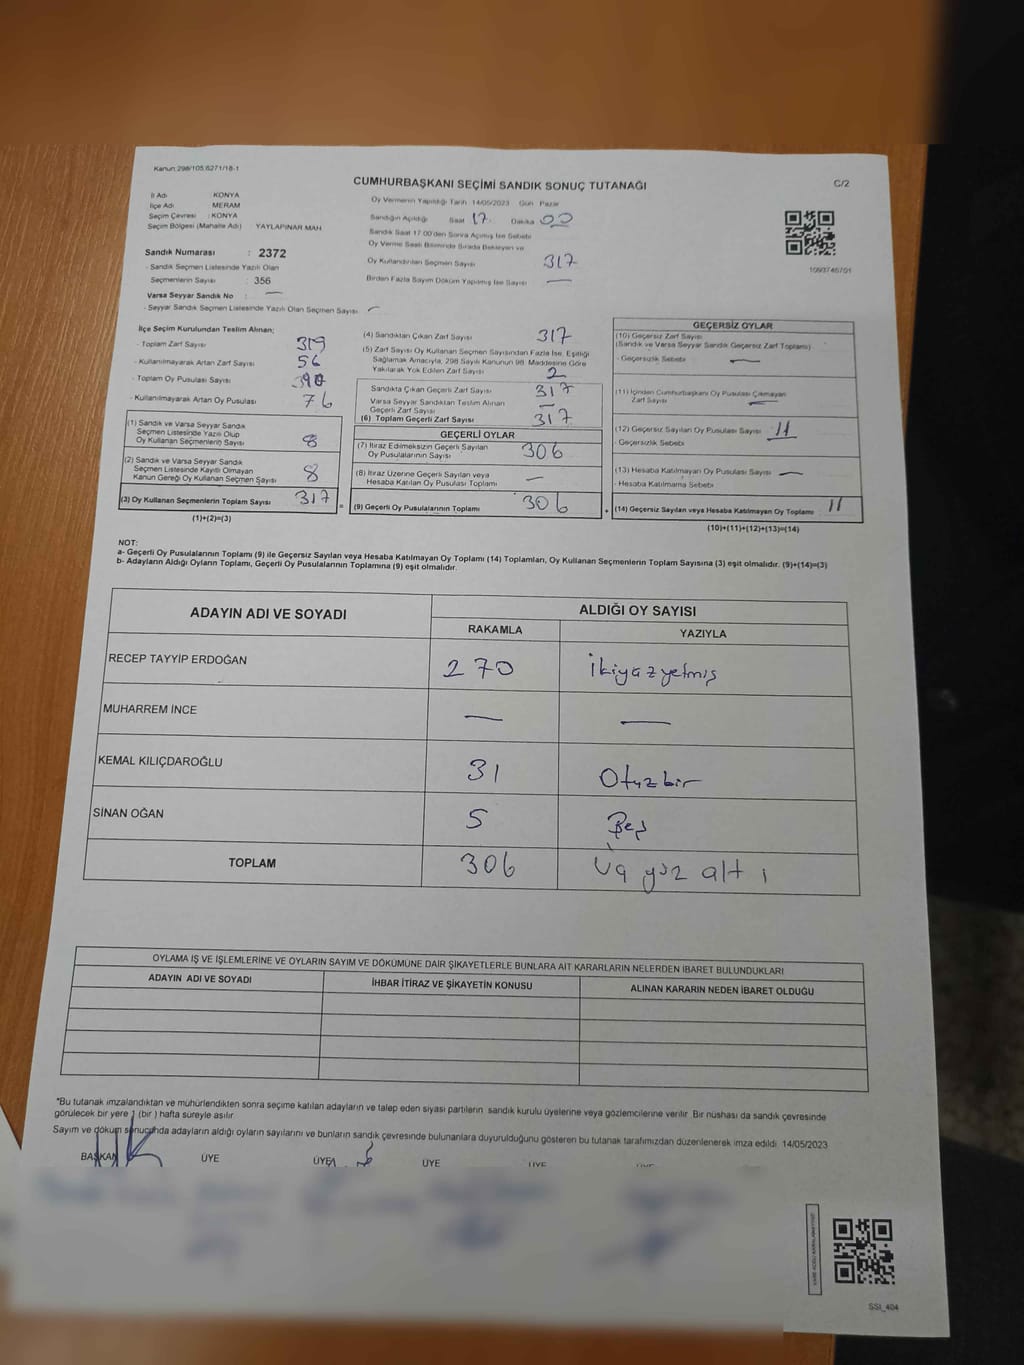 Kanun:298/105,6271/18-1
CUMHURBAŞKANI SEÇİMİ SANDIK SONUÇ TUTANAĞI
C/2
İl Adı KONYA
İlçe Adı MERAM
Seçim Çevresi : KONYA
Seçim Bölgesi (Mahalle Adı) YAYLAPINAR MAH
Sandık Numarası : 2372
- Sandık Seçmen Listesinde Yazılı Olan
Seçmenlerin Sayısı : 356
Varsa Seyyar Sandık No : —
- Seyyar Sandık Seçmen Listesinde Yazılı Olan Seçmen Sayısı: —
Oy Vermenin Yapıldığı Tarih 14/05/2023 Gün Pazar
Sandığın Açıldığı Saat 17 Dakika 00
Sandık Saat 17:00'den Sonra Açılmış İse Sebebi
Oy Verme Saati Bitiminde Sırada Bekleyen ve
Oy Kullandırılan Seçmen Sayısı 317
Birden Fazla Sayım Döküm Yapılmış İse Sayısı —
1093746701
İlçe Seçim Kurulundan Teslim Alınan;
- Toplam Zarf Sayısı 319
- Kullanılmayarak Artan Zarf Sayısı 56
- Toplam Oy Pusulası Sayısı 390
- Kullanılmayarak Artan Oy Pusulası 76
(1) Sandık ve Varsa Seyyar Sandık
Seçmen Listesinde Yazılı Olup
Oy Kullanan Seçmenlerin Sayısı 8
(2) Sandık ve Varsa Seyyar Sandık
Seçmen Listesinde Kayıtlı Olmayan
Kanun Gereği Oy Kullanan Seçmen Sayısı 8
(3) Oy Kullanan Seçmenlerin Toplam Sayısı 317
(1)+(2)=(3)
=
(4) Sandıktan Çıkan Zarf Sayısı 317
(5) Zarf Sayısı Oy Kullanan Seçmen Sayısından Fazla İse, Eşitliği
Sağlamak Amacıyla, 298 Sayılı Kanunun 98. Maddesine Göre
Yakılarak Yok Edilen Zarf Sayısı 2
Sandıkta Çıkan Geçerli Zarf Sayısı 317
Varsa Seyyar Sandıktan Teslim Alınan
Geçerli Zarf Sayısı —
(6) Toplam Geçerli Zarf Sayısı 317
GEÇERLİ OYLAR
(7) İtiraz Edilmeksizin Geçerli Sayılan
Oy Pusulalarının Sayısı 306
(8) İtiraz Üzerine Geçerli Sayılan veya
Hesaba Katılan Oy Pusulası Toplamı —
(9) Geçerli Oy Pusulalarının Toplamı 306
+
GEÇERSİZ OYLAR
(10) Geçersiz Zarf Sayısı
(Sandık ve Varsa Seyyar Sandık Geçersiz Zarf Toplamı)
- Geçersizlik Sebebi —
(11) İçinden Cumhurbaşkanı Oy Pusulası Çıkmayan
Zarf Sayısı —
(12) Geçersiz Sayılan Oy Pusulası Sayısı 11
- Geçersizlik Sebebi
(13) Hesaba Katılmayan Oy Pusulası Sayısı —
- Hesaba Katılmama Sebebi
(14) Geçersiz Sayılan veya Hesaba Katılmayan Oy Toplamı 11
(10)+(11)+(12)+(13)=(14)
NOT:
a- Geçerli Oy Pusulalarının Toplamı (9) ile Geçersiz Sayılan veya Hesaba Katılmayan Oy Toplamı (14) Toplamları, Oy Kullanan Seçmenlerin Toplam Sayısına (3) eşit olmalıdır. (9)+(14)=(3)
b- Adayların Aldığı Oyların Toplamı, Geçerli Oy Pusulalarının Toplamına (9) eşit olmalıdır.
ADAYIN ADI VE SOYADI ALDIĞI OY SAYISI
RAKAMLA YAZIYLA
RECEP TAYYİP ERDOĞAN 270 İkiyüzyetmiş
MUHARREM İNCE — —
KEMAL KILIÇDAROĞLU 31 Otuzbir
SİNAN OĞAN 5 Beş
TOPLAM 306 Üç yüz altı
OYLAMA İŞ VE İŞLEMLERİNE VE OYLARIN SAYIM VE DÖKÜMÜNE DAİR ŞİKAYETLERLE BUNLARA AİT KARARLARIN NELERDEN İBARET BULUNDUKLARI
ADAYIN ADI VE SOYADI İHBAR İTİRAZ VE ŞİKAYETİN KONUSU ALINAN KARARIN NEDEN İBARET OLDUĞU
*Bu tutanak imzalandıktan ve mühürlendikten sonra seçime katılan adayların ve talep eden siyasi partilerin sandık kurulu üyelerine veya gözlemcilerine verilir. Bir nüshası da sandık çevresinde
görülecek bir yere 1 (bir) hafta süreyle asılır.
Sayım ve döküm sonucunda adayların aldığı oyların sayılarını ve bunların sandık çevresinde bulunanlara duyurulduğunu gösteren bu tutanak tarafımızdan düzenlenerek imza edildi. 14/05/2023
BAŞKAN ÜYE ÜYE ÜYE ÜYE
SSI_404